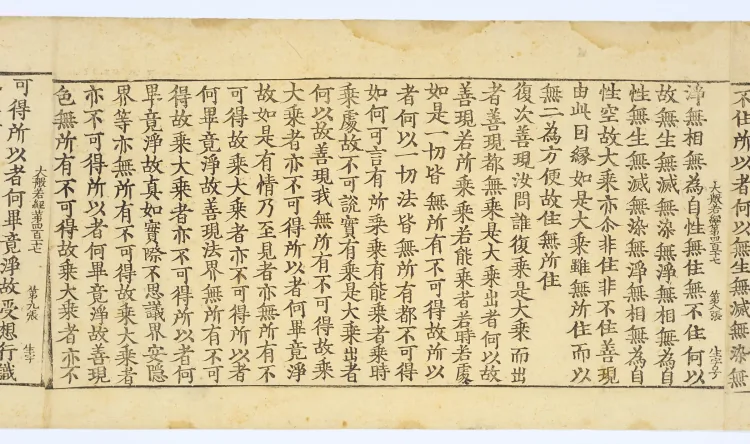 不住所以者何以無生無滅無染無
大般若經第四百十七 第八張 生字号
淨無相無為自性無住無不住何以
故無生無滅無染無淨無相無為自
性無生無滅無染無淨無相無為自
性空故大乘亦尒非住非不住善現
由此因緣如是大乘雖無所住而以
無二為方便故住無所住
復次善現汝問誰復乘是大乘而出
者善現都無乘是大乘出者何以故
善現若所乘乘若能乘者若時若處
如是一切皆無所有不可得故所以
者何以一切法皆無所有都不可得
如何可言有所乘乘有能乘者乘時
乘處故不可說實有乘是大乘出者
何以故善現我無所有不可得故乘
大乘者亦不可得所以者何畢竟淨
故如是有情乃至見者亦無所有不
可得故乘大乘者亦不可得所以者
何畢竟淨故善現法界無所有不可
得故乘大乘者亦不可得所以者何
畢竟淨故真如實際不思議界安隱
界等亦無所有不可得故乘大乘者
亦不可得所以者何畢竟淨故善現
色無所有不可得故乘大乘者亦不
大般若經第四百十七 第九張 生字
可得所以者何畢竟淨故受想行識